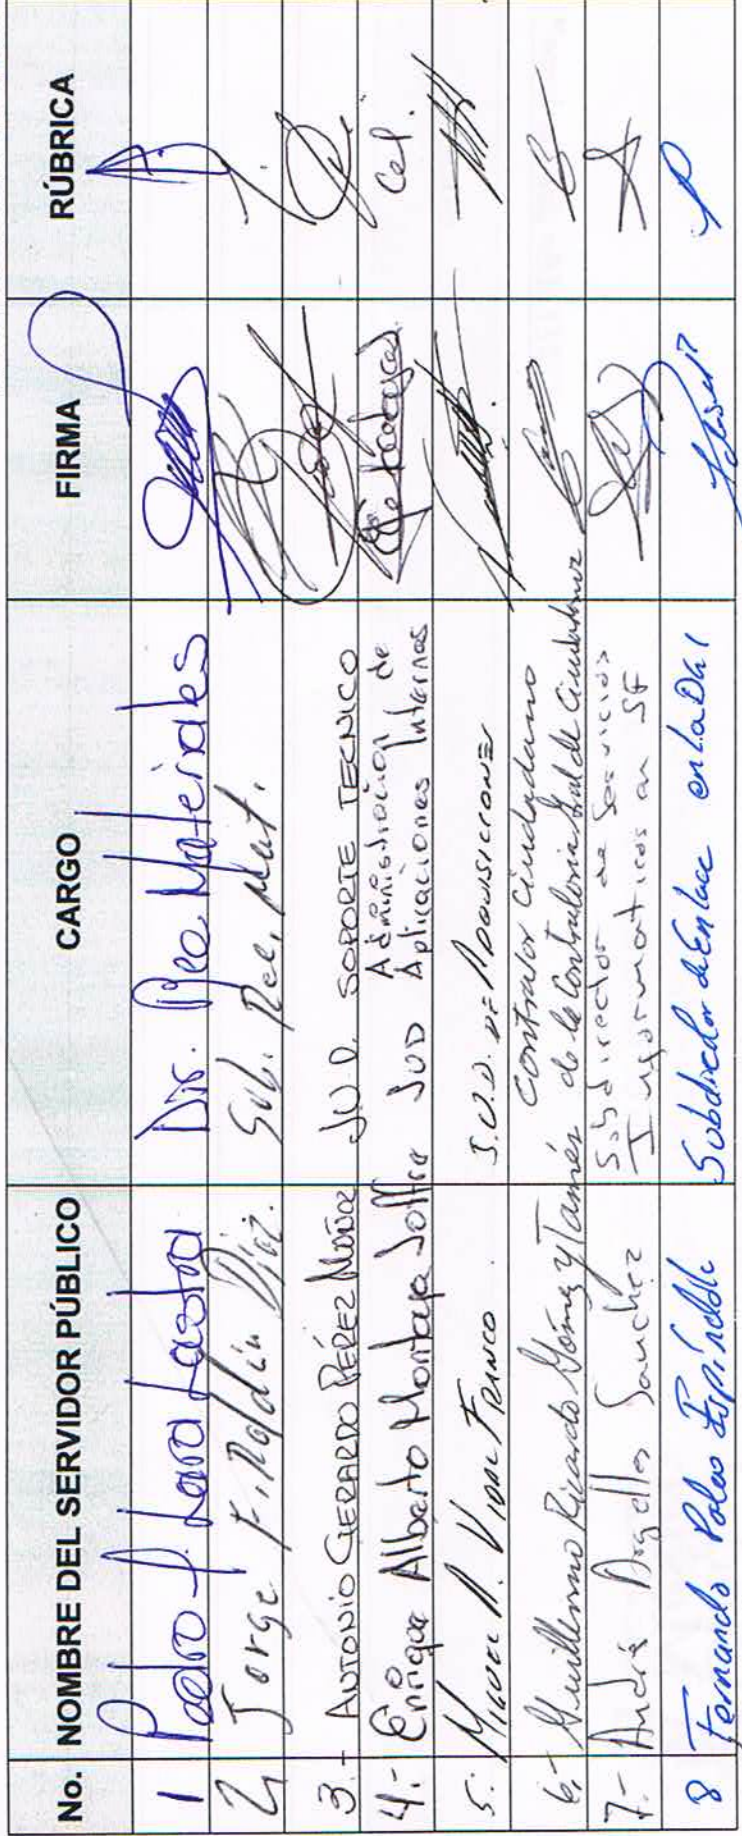 No. NOMBRE DEL SERVIDOR PÚBLICO CARGO FIRMA RÚBRICA
1 Pedro P. Lara Lastra Dir. Rec Materiales
2 Jorge F. Roldán Díaz. Sub. Rec. Mat.
3.- ANTONIO GERARDO PÉREZ MUÑOZ J.U.D. SOPORTE TECNICO
4.- Enrique Alberto Montaya Joffre JUD Administración de
Aplicaciones Internas Cel.
5.- MIGUEL A. VIDAL FRANCO J.U.D. DE ADQUISICIONES
6.- Guillermo Ricardo Gómez y Tamés Contralor Ciudadano
de la Contraloría Gral de
7.- André Argelles Sanchez Subdirector de Servicios
Informaticos en SF
8 Fernando Polas Espíndola Subdirector de Enlace en la DGI